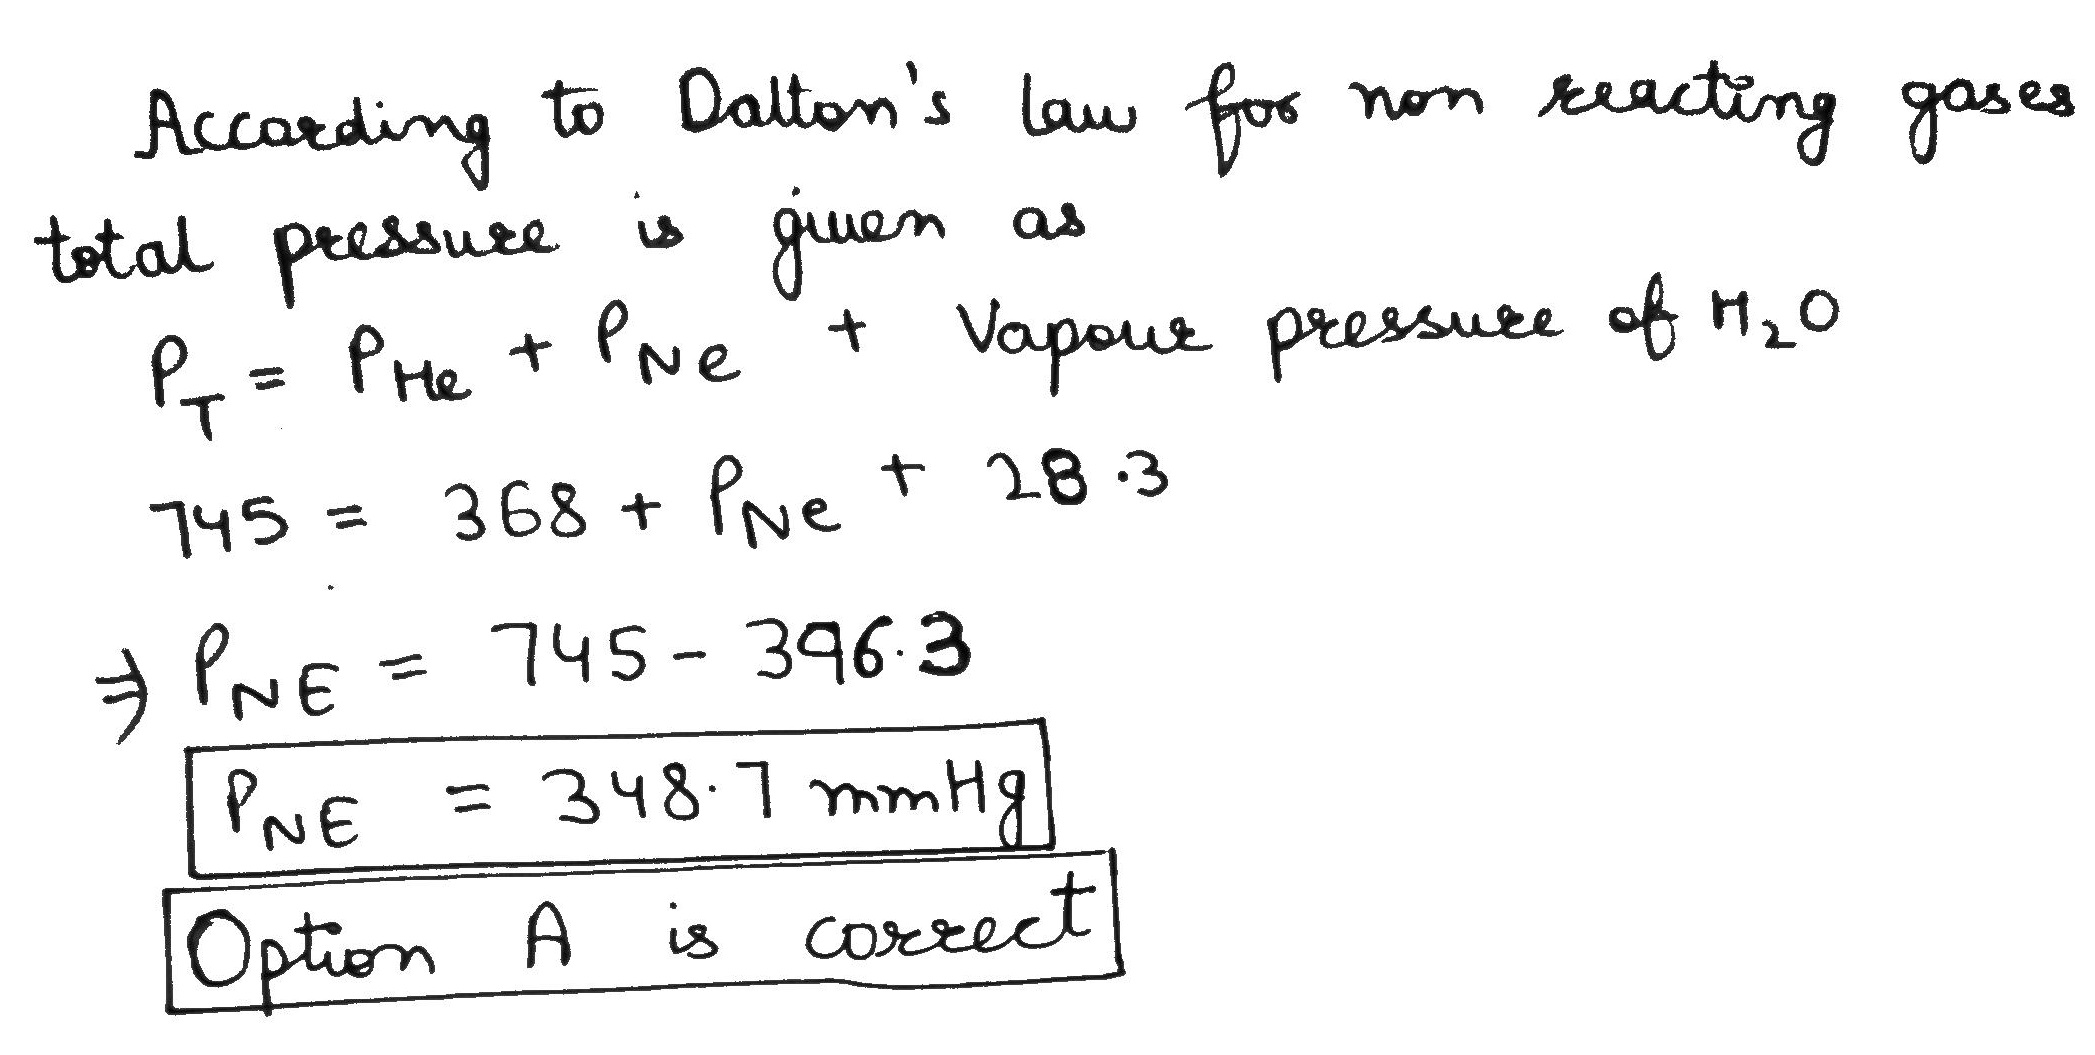 According to Dalton's law for non reacting gases
total pressure is given as
P_T = P_He + P_Ne + Vapour pressure of H₂O
745 = 368 + P_Ne + 28.3
⇒ P_NE = 745 - 396.3
P_NE = 348.7 mmHg
Option A is correct